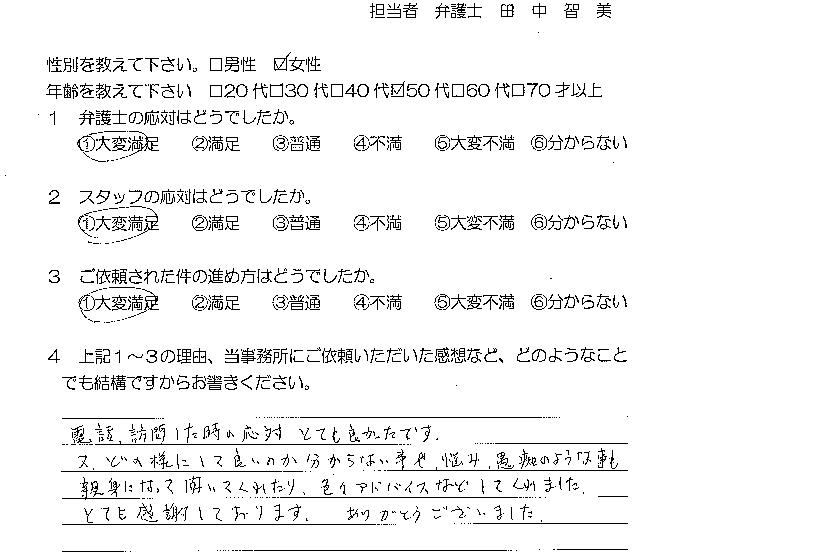 担当者　弁護士　田　中　智　美
性別を教えて下さい。□男性　☑女性
年齢を教えて下さい　□20代□30代□40代☑50代□60代□70才以上
1　弁護士の応対はどうでしたか。
①大変満足　②満足　③普通　④不満　⑤大変不満　⑥分からない
2　スタッフの応対はどうでしたか。
①大変満足　②満足　③普通　④不満　⑤大変不満　⑥分からない
3　ご依頼された件の進め方はどうでしたか。
①大変満足　②満足　③普通　④不満　⑤大変不満　⑥分からない
4　上記1～3の理由、当事務所にご依頼いただいた感想など、どのようなこと
でも結構ですからお書きください。
電話、訪問した時の応対 とても良かたです。
又、どの様にして良いのか分からない事や、悩み、愚痴のような事も
親身になって聞いてくれたり、色々アドバイスなどしてくれました。
とても感謝しております。　ありがとうございました。